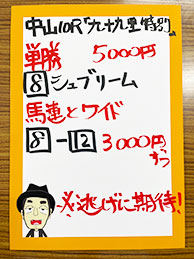 中山10R「九十九里特別」
単勝 5000円
8 シュブリーム
馬連とワイド
8-12 3000円
ずつ
※逃げに期待!